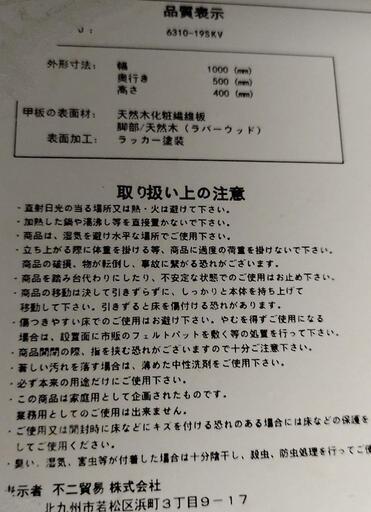 品質表示
J : 6310-19SKV
外形寸法: 幅 1000 (mm)
奥行き 500 (mm)
高さ 400 (mm)
甲板の表面材: 天然木化粧繊維板
脚部/天然木 (ラバーウッド)
表面加工: ラッカー塗装
取り扱い上の注意
・直射日光の当る場所又は熱・火は避けて下さい。
・加熱した鍋や湯沸し等を直接置かないで下さい。
・商品は、湿気を避け水平な場所でご使用下さい。
・立ち上がる際に体重を掛ける等、商品に過度の荷重を掛けないで下さい。
商品の破損、物が転倒し、事故に繋がる恐れがございます。
・商品を踏み台代わりにしたり、不安定な状態でのご使用はお止め下さい。
・商品の移動は決して引きずらずに、しっかりと本体を持ち上げて
移動して下さい。引きずると床を傷付ける恐れがあります。
・傷つきやすい床でのご使用はお避け下さい。やむを得ずご使用になる
場合は、設置面に市販のフェルトパットを敷く等の処置を行って下さい。
・商品開閉の際、指を挟む恐れがございますので十分ご注意下さい。
・著しい汚れを落す場合は、薄めた中性洗剤をご使用下さい。
・必ず本来の用途だけにご使用下さい。
・この商品は家庭用として企画されたものです。
業務用としてのご使用は出来ません。
・ご使用又は開封時に床などにキズを付ける恐れのある場合には床などの保護を
してご使用ください。
・臭い、湿気、害虫等が付着した場合は十分陰干し、殺虫、防虫処理を行ってご使
示者 不二貿易 株式会社
北九州市若松区浜町3丁目9-17